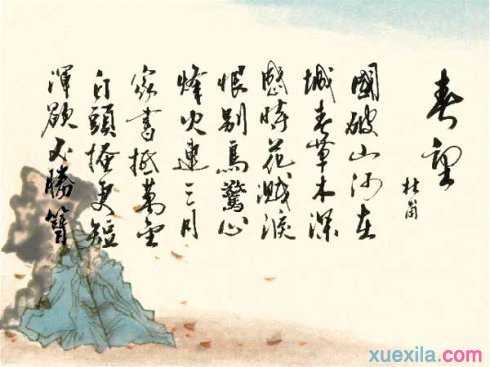 春望
杜甫
國破山河在
城春草木深
感時花濺淚
恨別鳥驚心
烽火連三月
家書抵萬金
白頭搔更短
渾欲不勝簪
xuexila.com